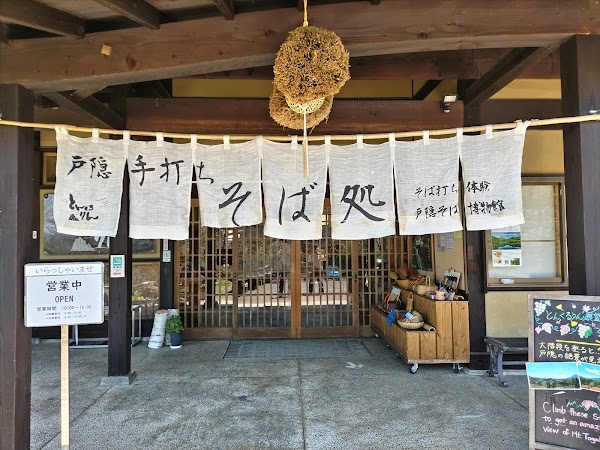 戸隠手打ちそば処
とんくるりん
そば打ち体験
戸隠そば博物館
いらっしゃいませ
営業中
OPEN
営業時間
とんくるりん
大階段を
戸隠の絶景が
Climb these
to get an amaz
view of Mt. Toga